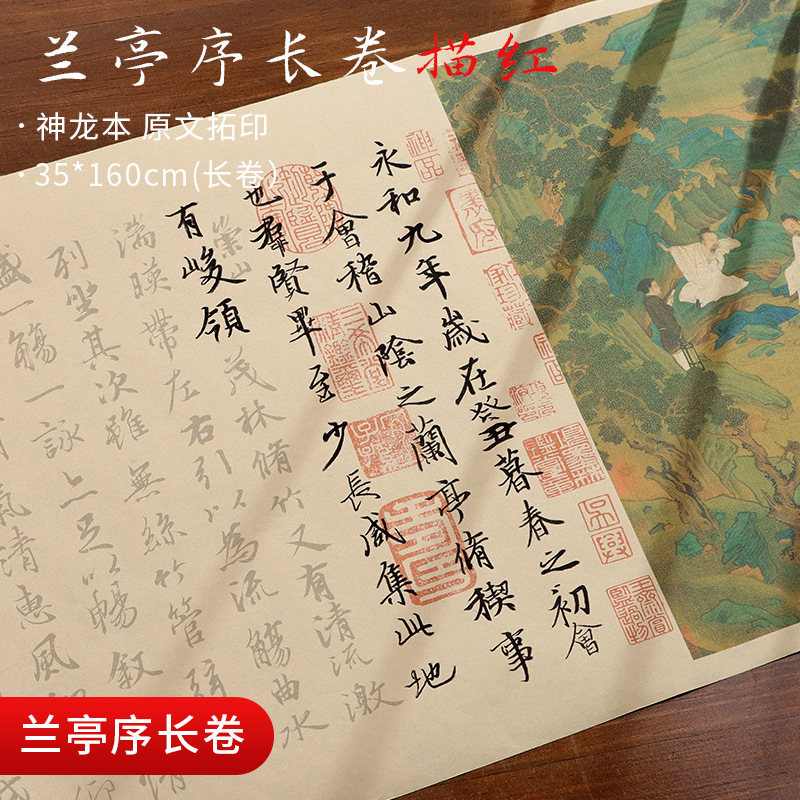 兰亭序长卷描红
·神龙本 原文拓印
·35*160cm(长卷)
永和九年歲在癸丑暮春之初會
于會稽山陰之蘭亭脩稧事
也羣賢畢至少長咸集此地
崇山
有峻領茂林脩竹又有清流激
湍暎帶左右引以為流觴曲水
列坐其次雖無絲竹管弦
盛一觴一詠亦足以暢敘
氣清惠風
兰亭序长卷